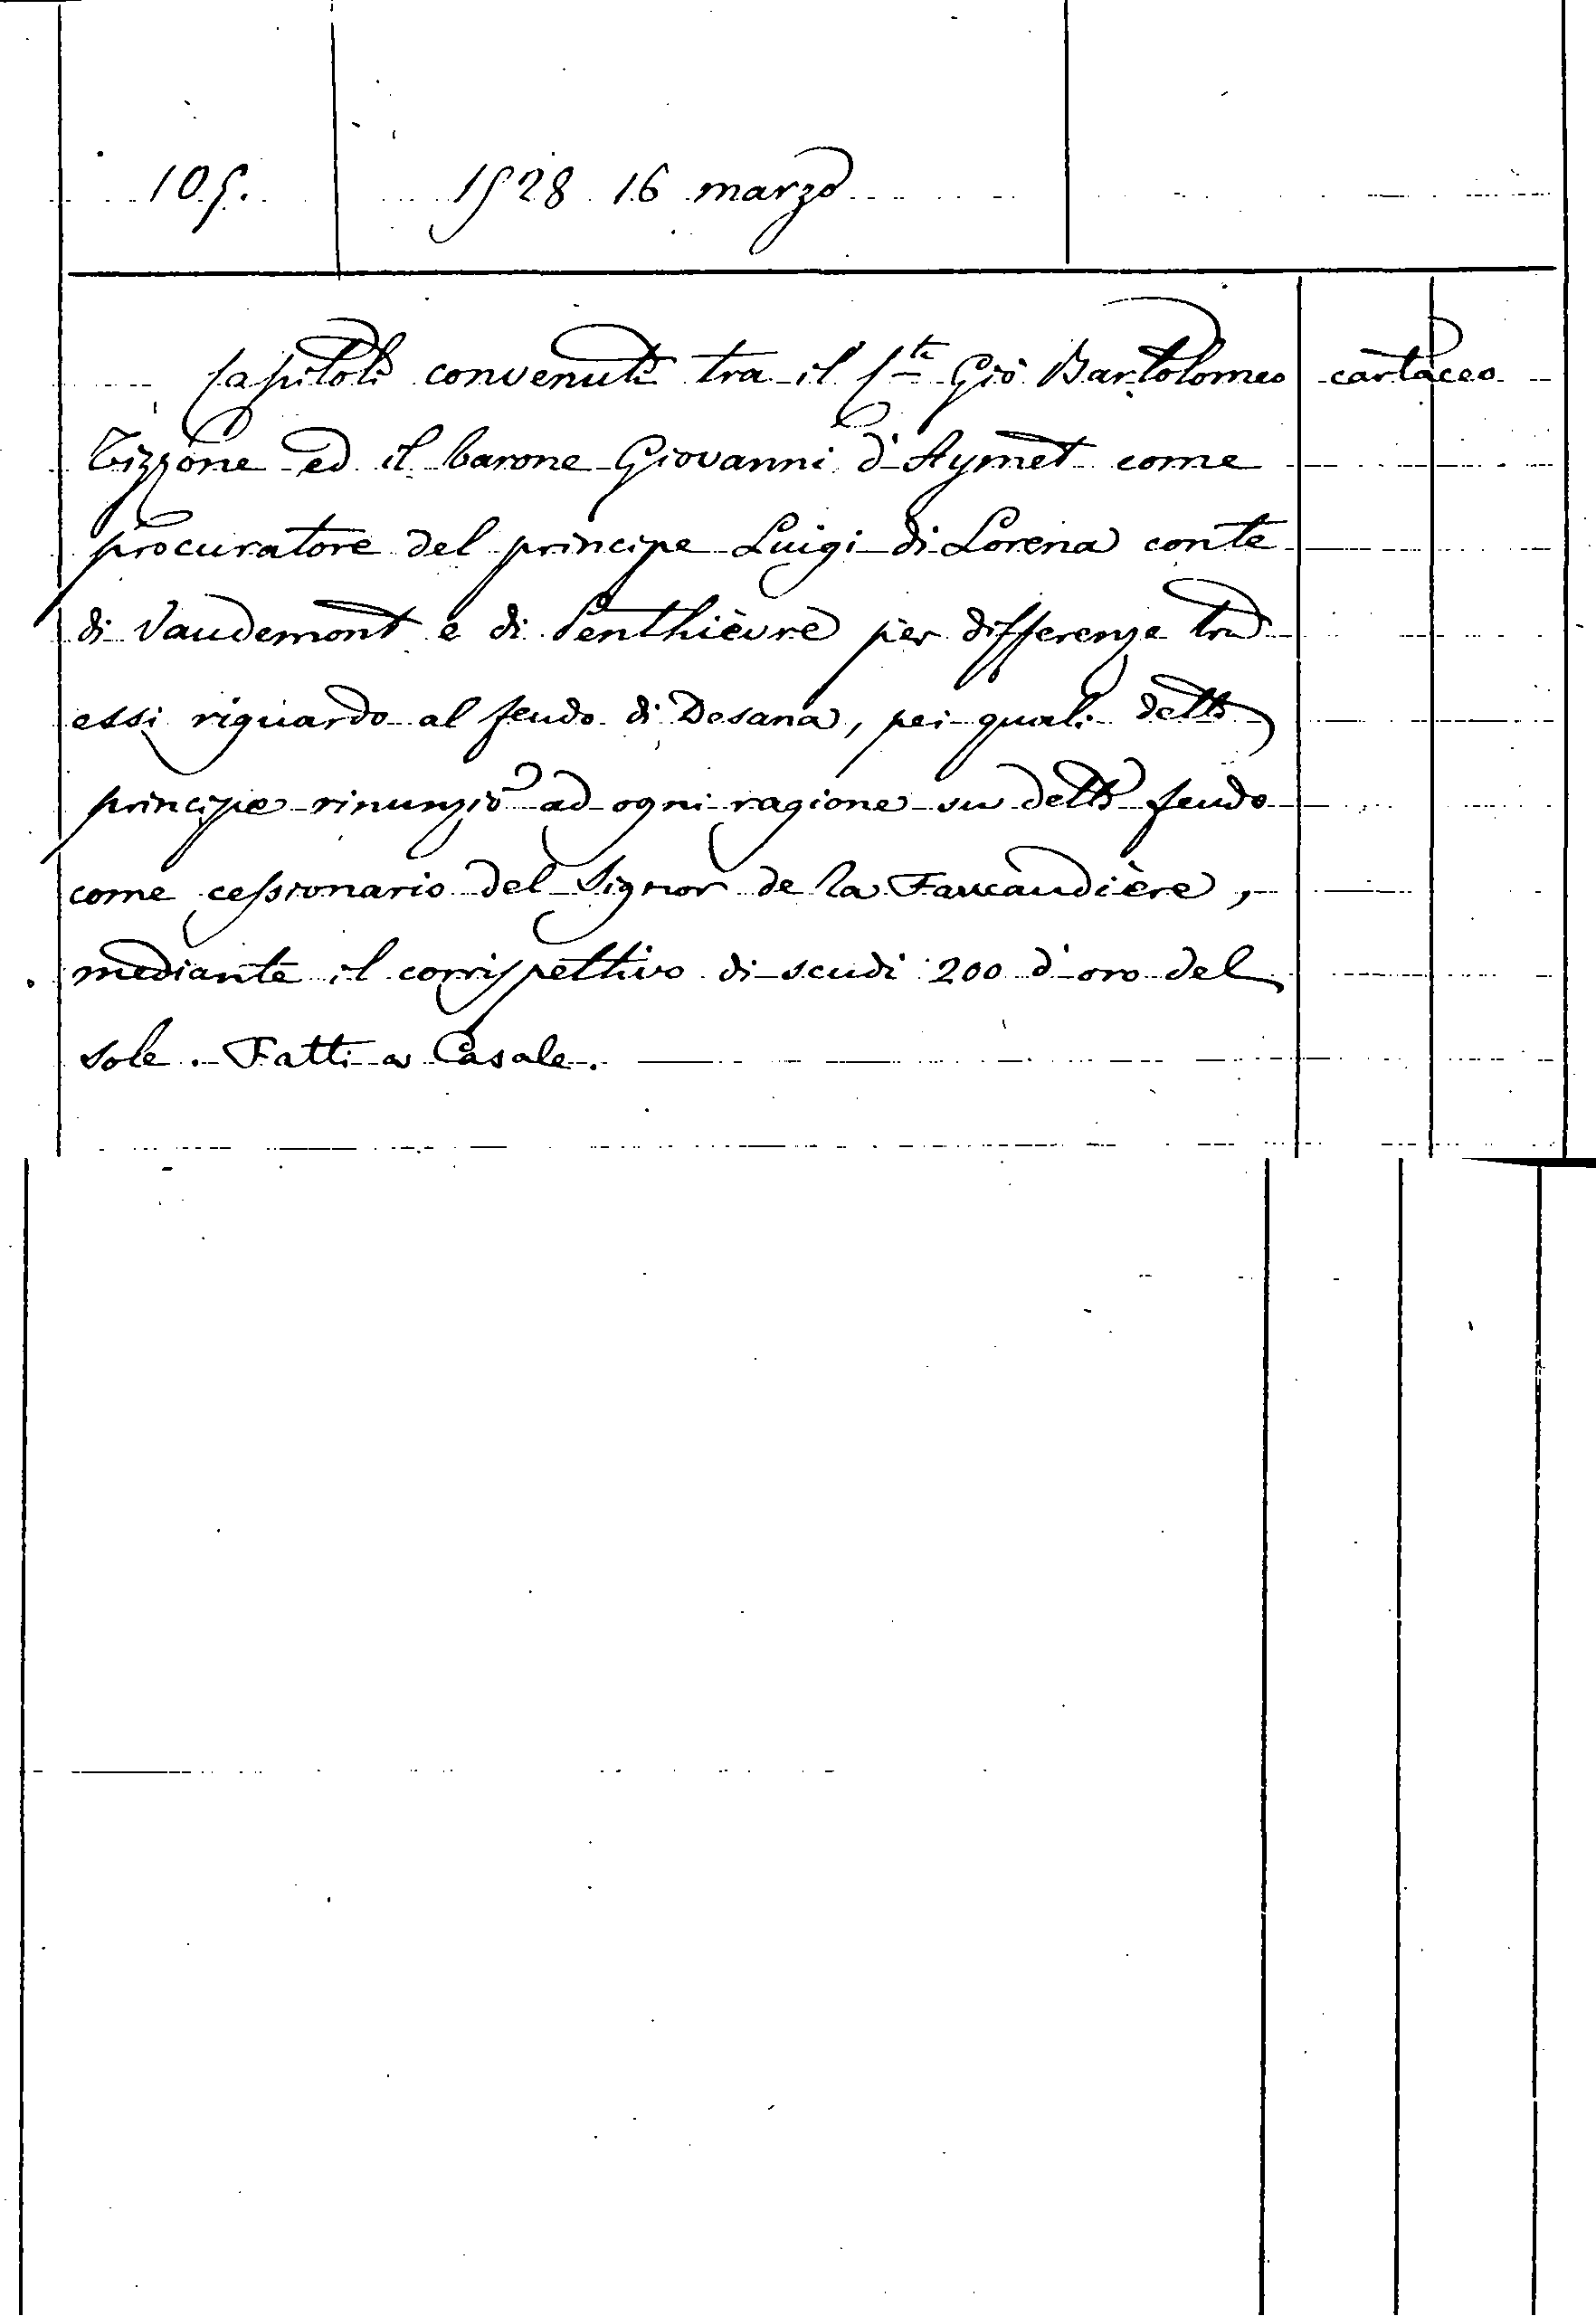 105. 1528 16 marzo
Capitoli convenuti tra il Cte Giò Bartolomeo cartaceo
Tizzone ed il barone Giovanni d'Aymet come
procuratore del principe Luigi di Lorena conte
di Vaudemont e di Penthièvre per differenze tra
essi riguardo al feudo di Desana, pei quali detto
principe rinunziò ad ogni ragione su detto feudo
come cessionario del Signor de la Faucaudière,
mediante il corrispettivo di scudi 200 d'oro del
sole. Fatti a Casale.